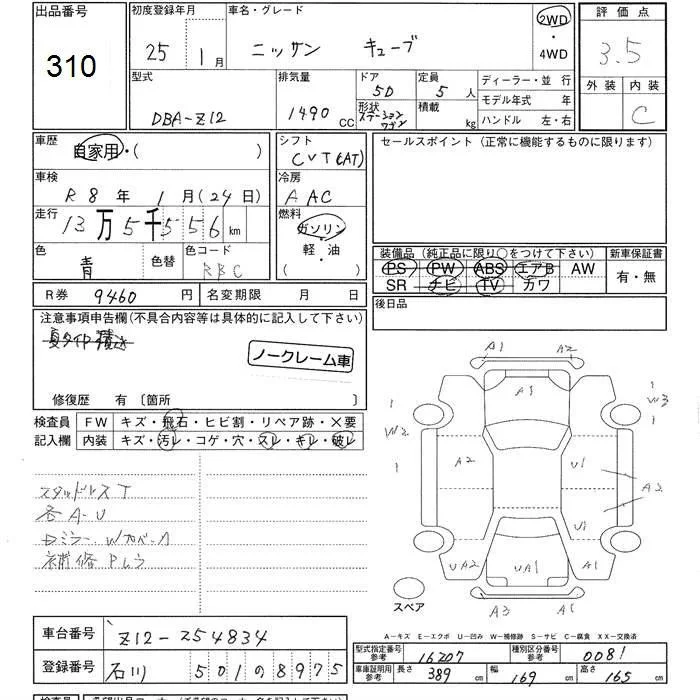 出品番号 310
初度登録年月 25 1月
車名・グレード ニッサン キューブ
2WD ・ 4WD
評価点 3.5
外装 内装 C
型式 DBA-Z12
排気量 1490 CC
ドア 5D
形状 ステーションワゴン
定員 5人
積載 kg
ディーラー・並 行
モデル年式 年
ハンドル 左・右
車歴 自家用・( )
シフト CVT(AT)
セールスポイント (正常に機能するものに限ります)
車検 R8年 1月(24日)
冷房 AAC
走行 13万5千556km
燃料 ガソリン・軽・油 ( )
色 青 色替
色コード RBC
装備品 (純正品に限り○をつけて下さい)
新車保証書 有・無
PS PW ABS エアB AW
SR ナビ TV カワ
R券 9460円
名変期限 月 日
後日品
注意事項申告欄(不具合内容等は具体的に記入して下さい)
夏タイヤ積込
ノークレーム車
修復歴 有 〔箇所 〕
検査員記入欄
FW キズ・飛石・ヒビ割・リペア跡・×要
内装 キズ・汚レ・コゲ・穴・スレ・キレ・破レ
スタッドレスT
各A-U
補修
A1 A2
A3
W2
W3
A2
U1
A2
U1
UA2
UA1
A1
A3 A1
スペア
A－キズ E－エクボ U－凹み W－補修跡 S－サビ C－腐食 XX－交換済
車台番号 Z12-254834
登録番号 石川 501の8975
型式指定番号 参考 16207
種別区分番号 参考 0081
車庫証明用 参考 長さ 389 cm 幅 169 cm 高さ 165 cm